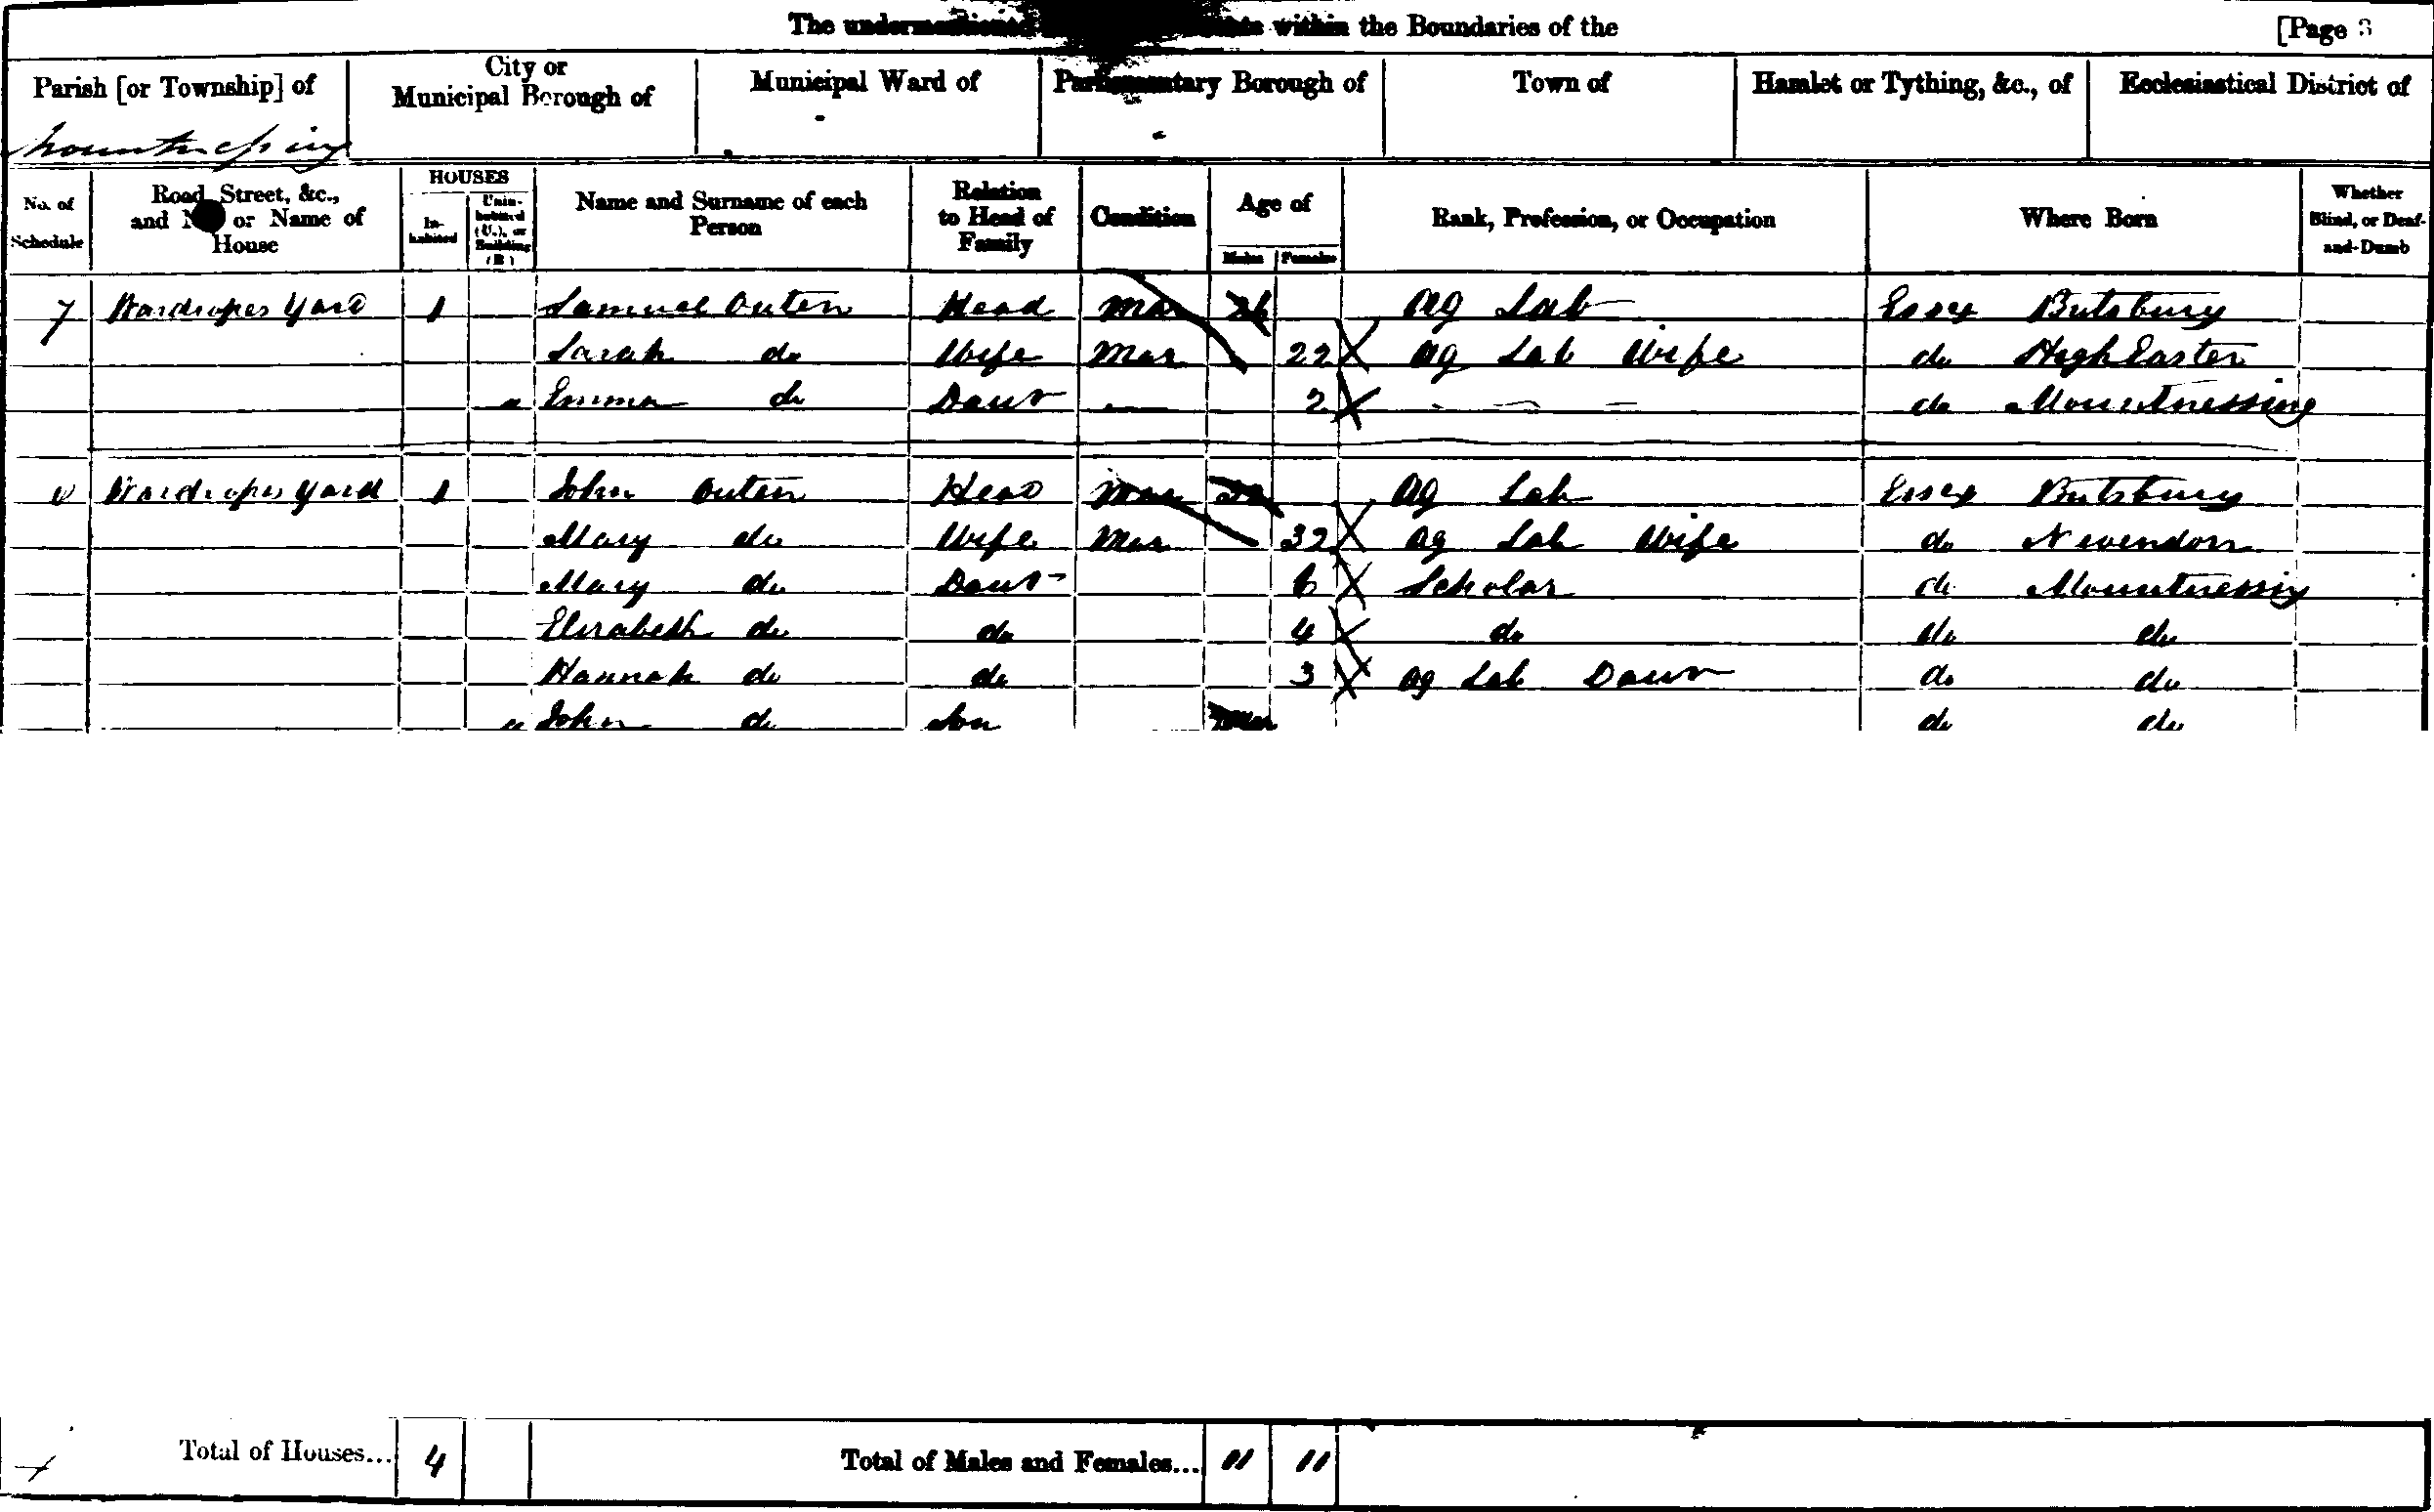 The undermentioned within the Boundaries of the [Page 3
Parish [or Township] of City or Municipal Borough of Municipal Ward of Parliamentary Borough of Town of Hamlet or Tything, &c., of Ecclesiastical District of
Mountnessing
No. of Schedule Road, Street, &c., and No. or Name of House HOUSES Inhabited Uninhabited (U.), or Building (B) Name and Surname of each Person Relation to Head of Family Condition Age of Males Females Rank, Profession, or Occupation Where Born Whether Blind, or Deaf-and-Dumb
7 Wardropes Yard 1 Samuel Outen Head Mar 26 Ag Lab Essex Butsbury
Sarah do Wife Mar 22 Ag Lab Wife do High Easter
Emma do Daur — 2 - - - do Mountnessing
8 Wardropes Yard 1 John Outen Head Mar Ag Lab Essex Butsbury
Mary do Wife Mar 32 Ag Lab Wife do Nevendon
Mary do Daur 6 Scholar do Mountnessing
Elizabeth do do 4 do do do
Hannah do do 3 Ag Lab Daur do do
John do Son do do
Total of Houses... 4 Total of Males and Females... 11 11